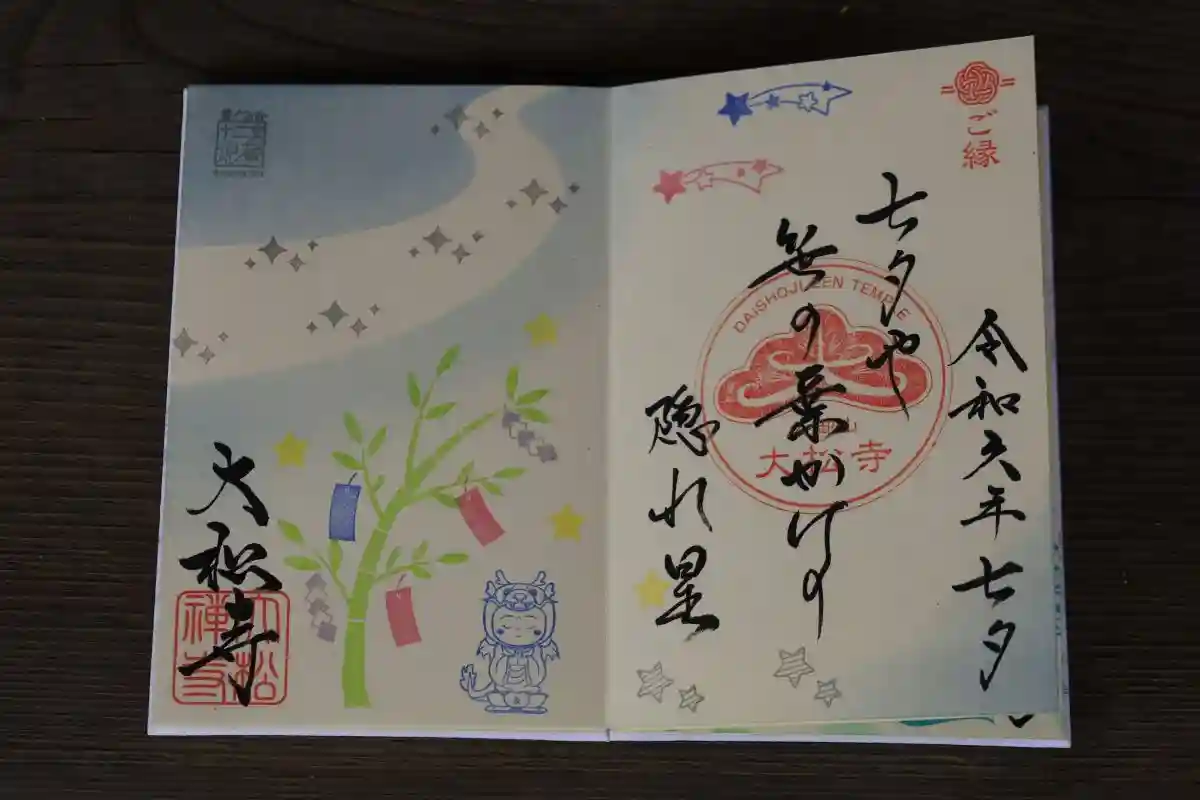 ご縁
令和六年七夕
七夕や
笹の葉かげの
隠れ星
DAISHOJI ZEN TEMPLE
大松寺
大松寺
大松禅寺